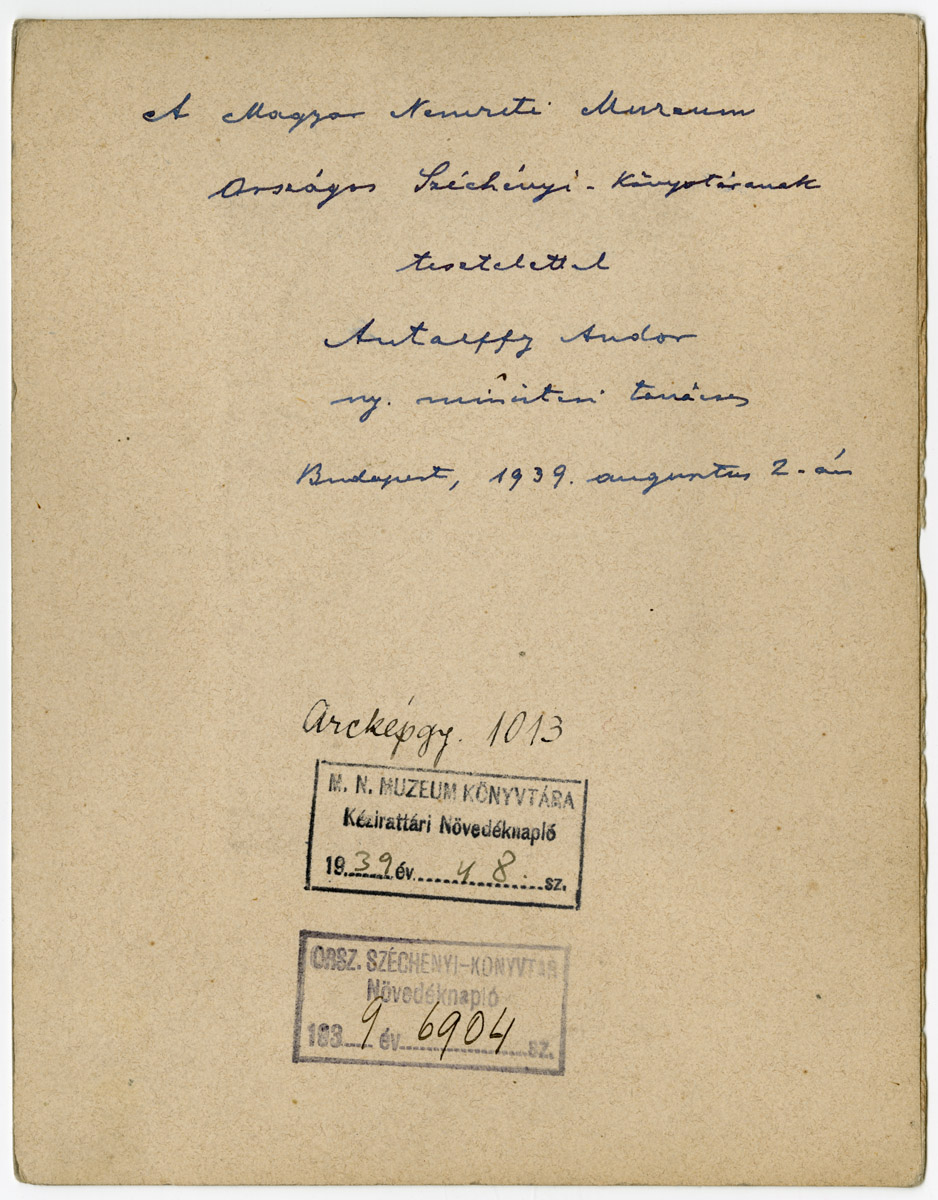 A Magyar Nemzeti Muzeum
Országos Széchényi-Könyvtáranak
tisztelettel
Antalffy Andor
ny. miniszteri tanácsos
Budapest, 1939. augusztus 2-án
Arcképgy. 1013
M. N. MUZEUM KÖNYVTÁRA
Kézirattári Növedéknapló
1939 év 48 sz.
ORSZ. SZÉCHÉNYI-KÖNYVTÁR
Növedéknapló
1939 év 6904 sz.